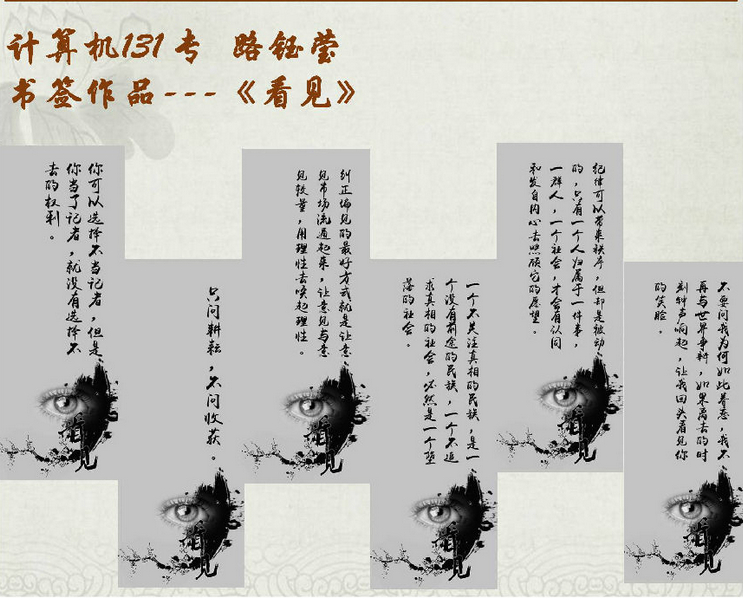 计算机131专 路钰莹
书签作品---《看见》
你可以选择不当记者，但是
你当了记者，就没有选择不
去的权利。
看见
只问耕耘，不问收获。
看见
纠正偏见的最好方式就是让意
见市场流通起来，让意见与意
见较量，用理性去唤起理性。
看见
一个不关注真相的民族，是一
个没有前途的民族，一个不追
求真相的社会，必然是一个堕
落的社会。
看见
纪律可以带来秩序，但却是被动
的，只有一个人归属于一件事，
一群人，一个社会，才会有认同
和发自内心去照顾它的愿望。
看见
不要问我为何如此眷恋，我不
再与世界争辩，如果离去的时
刻钟声响起，让我回头看见你
的笑脸。
看见